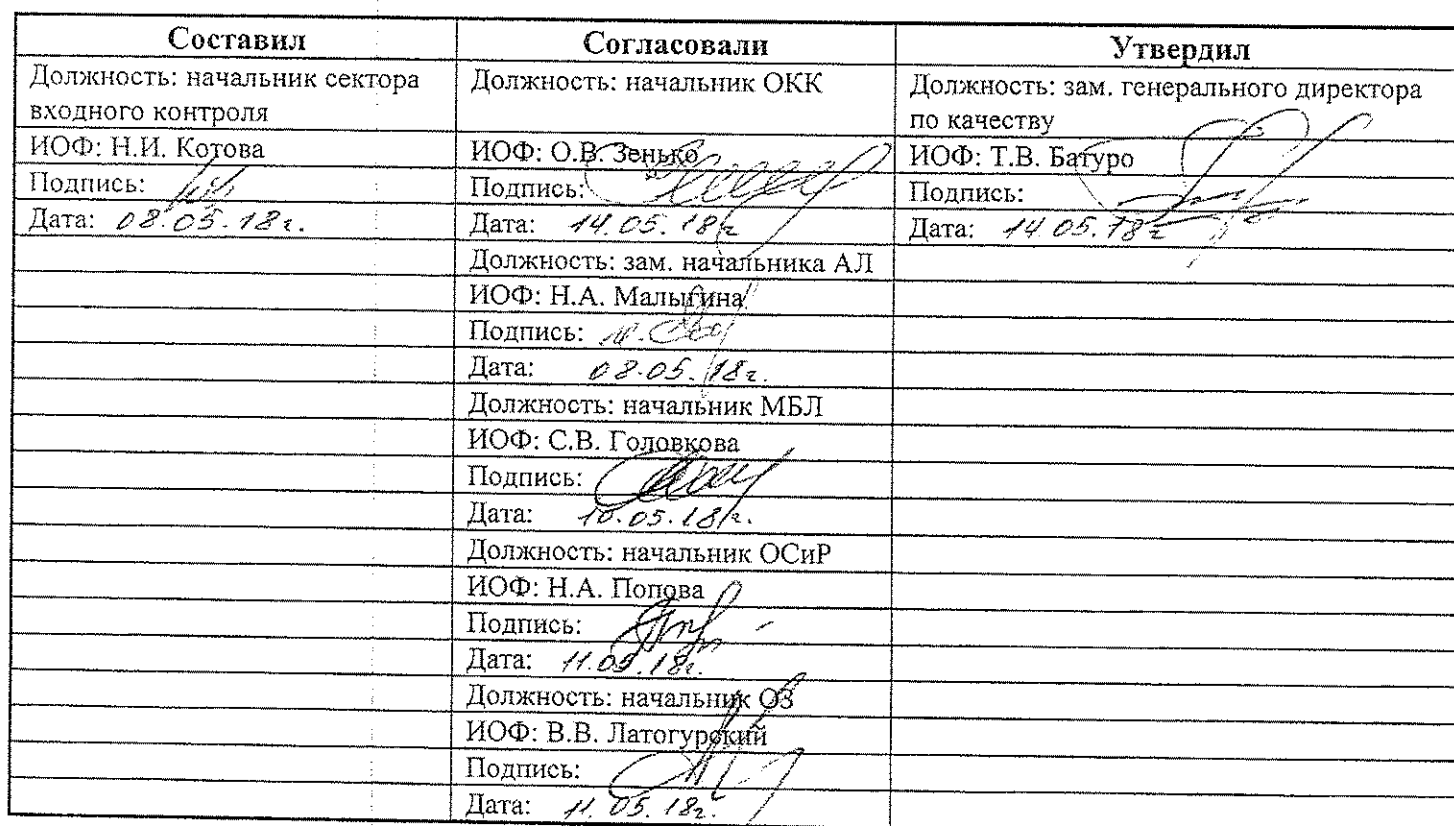 Составил Согласовали Утвердил
Должность: начальник сектора Должность: начальник ОКК Должность: зам. генерального директора
входного контроля по качеству
ИОФ: Н.И. Котова ИОФ: О.В. Зенько ИОФ: Т.В. Батуро
Подпись: Подпись: Подпись:
Дата: 08.05.18г. Дата: 14.05.18г Дата: 14.05.18г
Должность: зам. начальника АЛ
ИОФ: Н.А. Малыгина
Подпись:
Дата: 08.05.18г.
Должность: начальник МБЛ
ИОФ: С.В. Головкова
Подпись:
Дата: 10.05.18г.
Должность: начальник ОСиР
ИОФ: Н.А. Попова
Подпись:
Дата: 11.05.18г.
Должность: начальник ОЗ
ИОФ: В.В. Латогурский
Подпись:
Дата: 11.05.18г.